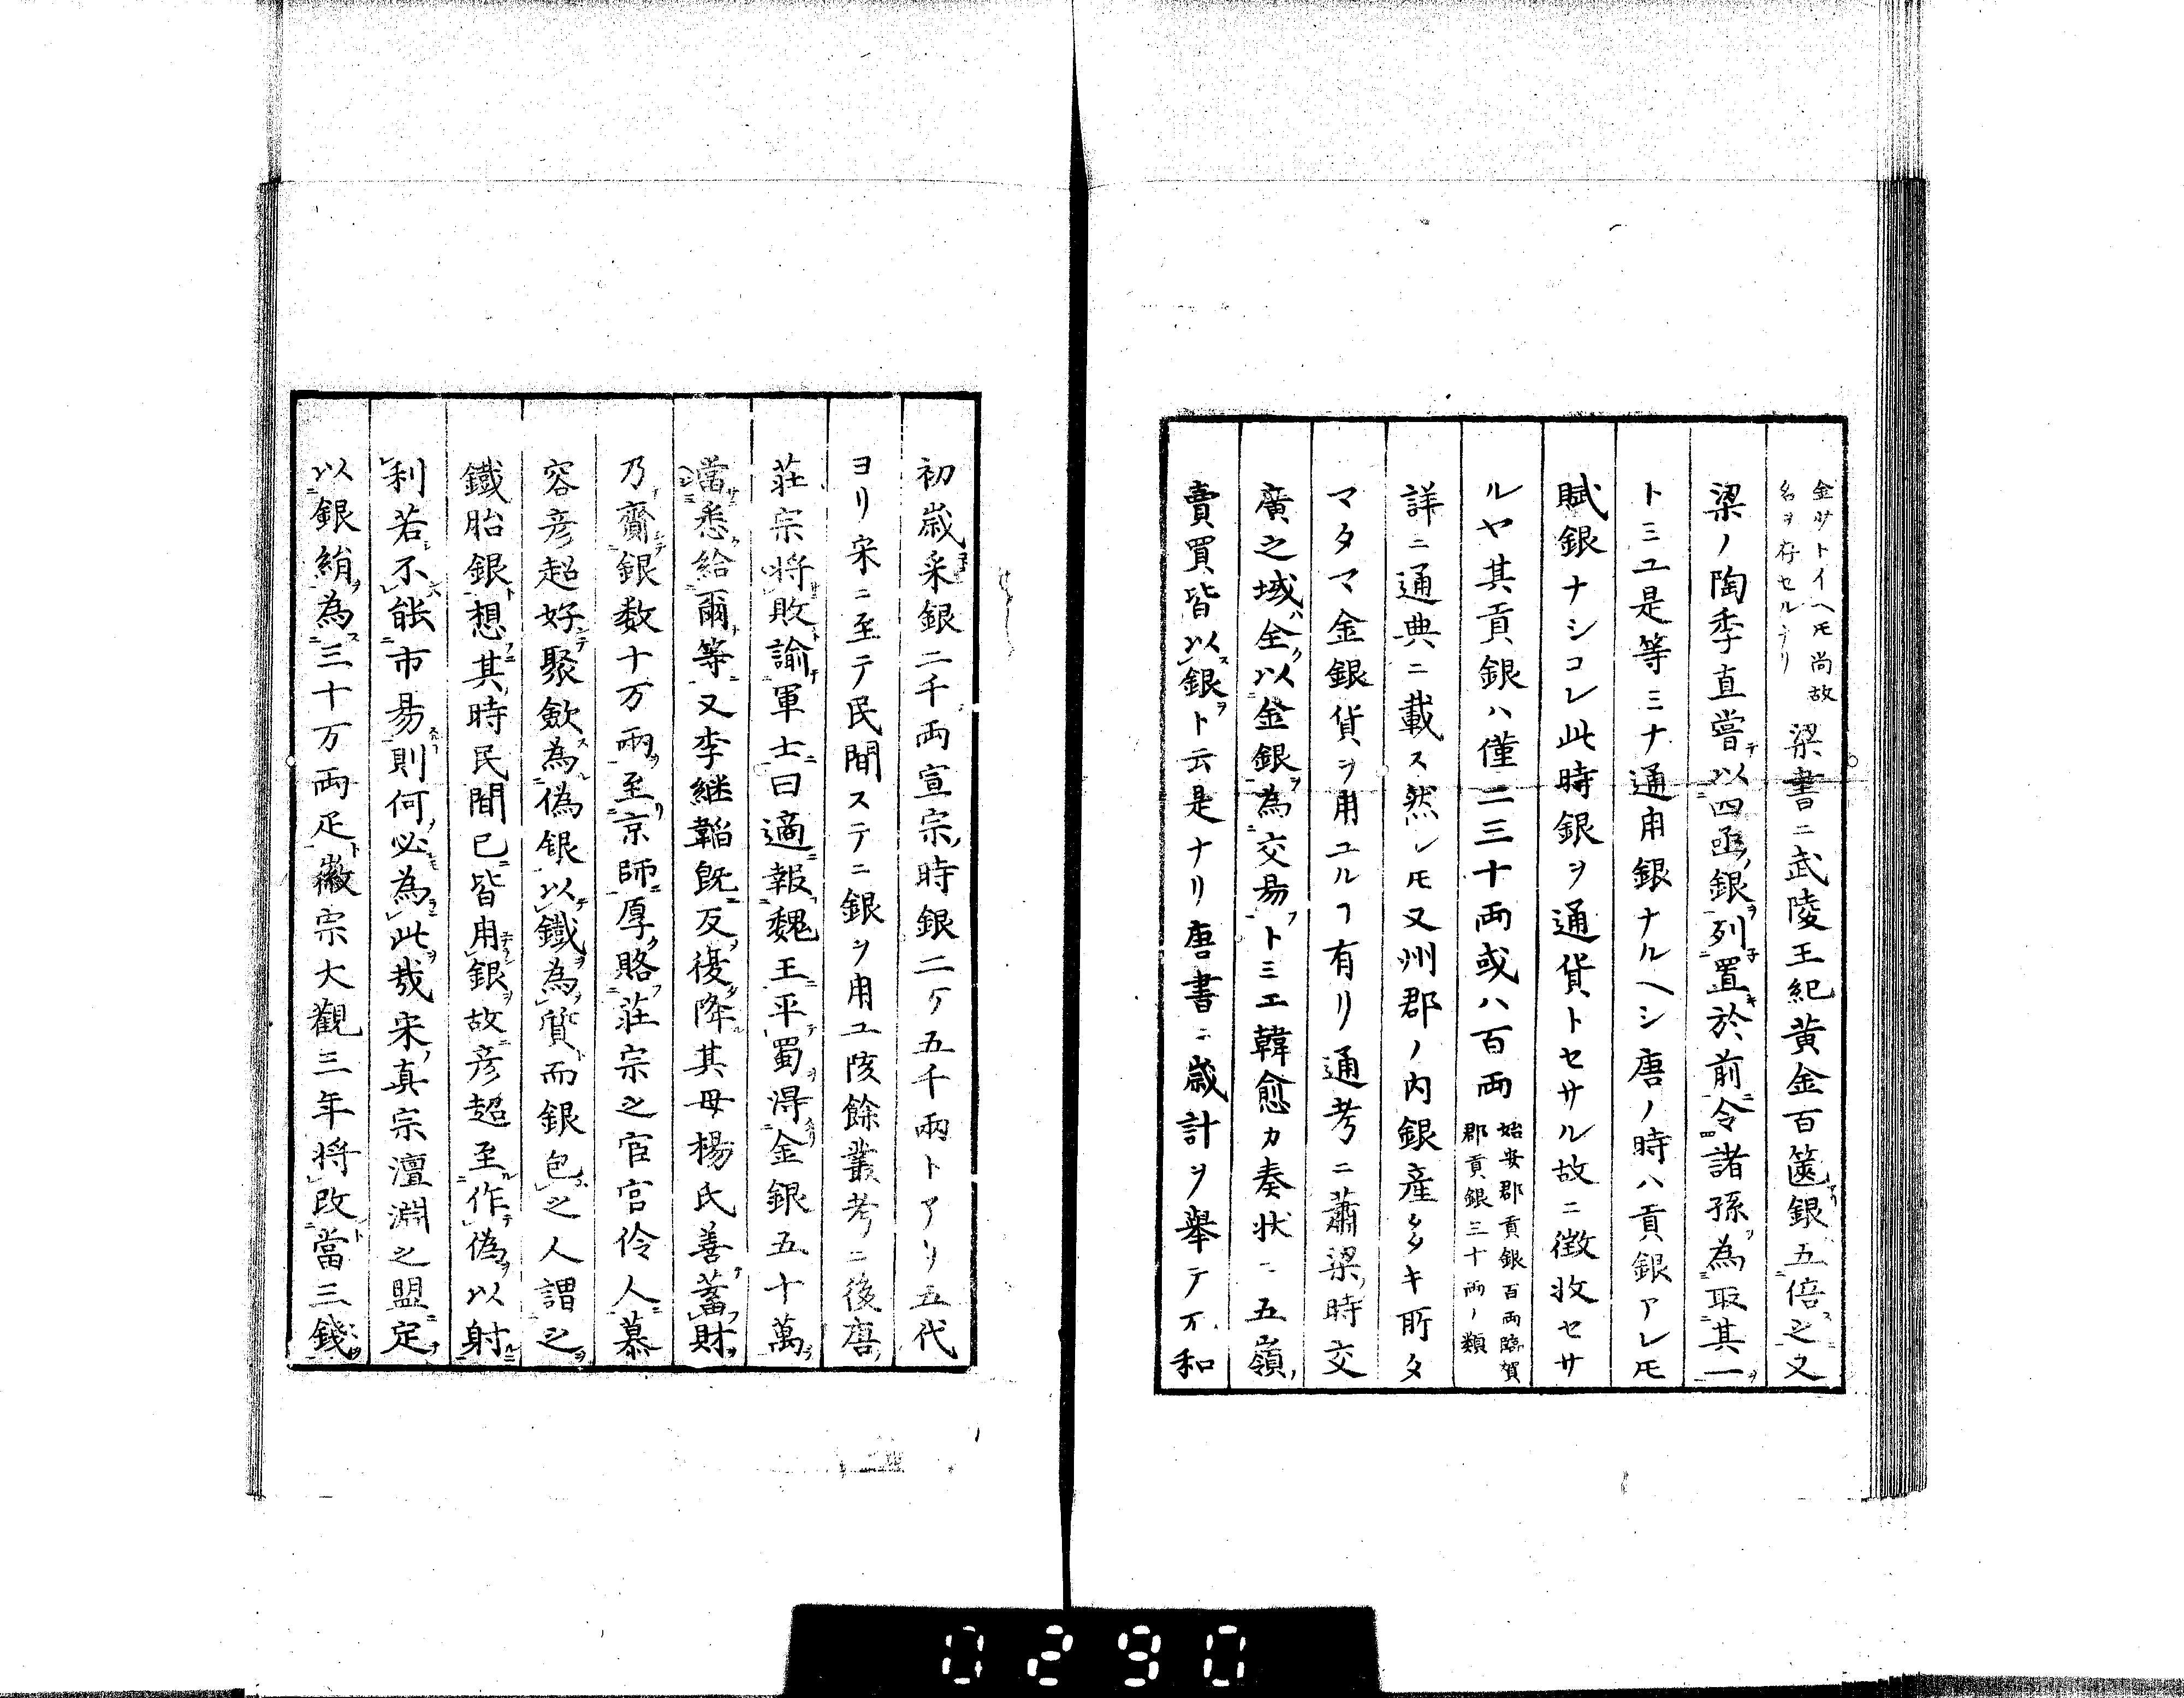 金ササトイヘトモ尚故
名ヲ存セルナリ
梁書ニ武陵王紀黄金百篋銀五倍之又
梁ノ陶季直嘗以四函銀列置於前令諸孫為取其一
トミユ是等ミナ通用銀ナルヘシ唐ノ時ハ貢銀アレ𪜈
賦銀ナシコレ此時銀ヲ通貨トセサル故ニ徴收セサ
ルヤ其貢銀ハ僅二三十両或ハ百両
始安郡貢銀百両臨賀
郡貢銀三十両ノ類
詳ニ通典ニ載ス然レ𪜈又州郡ノ内銀産多キ所タ
マタマ金銀貨ヲ用ユルヿ有リ通考ニ蕭梁時交
廣之域全以金銀為交易トミエ韓愈カ奏状ニ五嶺
賣買皆以銀ト云是ナリ唐書ニ歳計ヲ舉テ元和
初歳采銀二千両宣宗時銀二万五千兩トアリ五代
ヨリ宋ニ至テ民間ステニ銀ヲ用ユ陔餘叢考ニ後唐
莊宗将敗諭軍士曰適報魏王平蜀得金銀五十萬
當悉給爾等又李継韜既反復降其母楊氏善蓄財
乃齎銀数十万兩至京師厚賂莊宗之宦官伶人慕
容彦超好聚斂為偽银以鐵為質而銀包之人謂之
鐵胎銀想其時民間已皆用銀故彦超至作偽以射
利若不能市易則何必為此哉宋真宗澶淵之盟定
以銀絹為三十万両疋徽宗大觀三年将改當三錢
0290